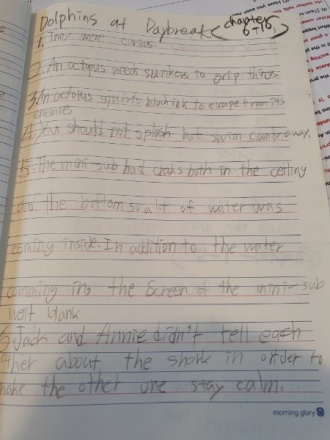 Dolphins at Daybreak (chapters 6-10)
1. They were curious.
2. An octopus needs sunkers to grip things.
3. An octopus squirts black ink to escape from its
enemies
4. You should not splash but swim away.
5. The mini sub had craks both in the ceiling
and the bottom of water was
coming inside. In addition to the water
comming in, the screen of the mini-sub
went blank
6. Jack and Annie didn't tell each
other about the shark in order to
make the other one stay calm.
morning glory